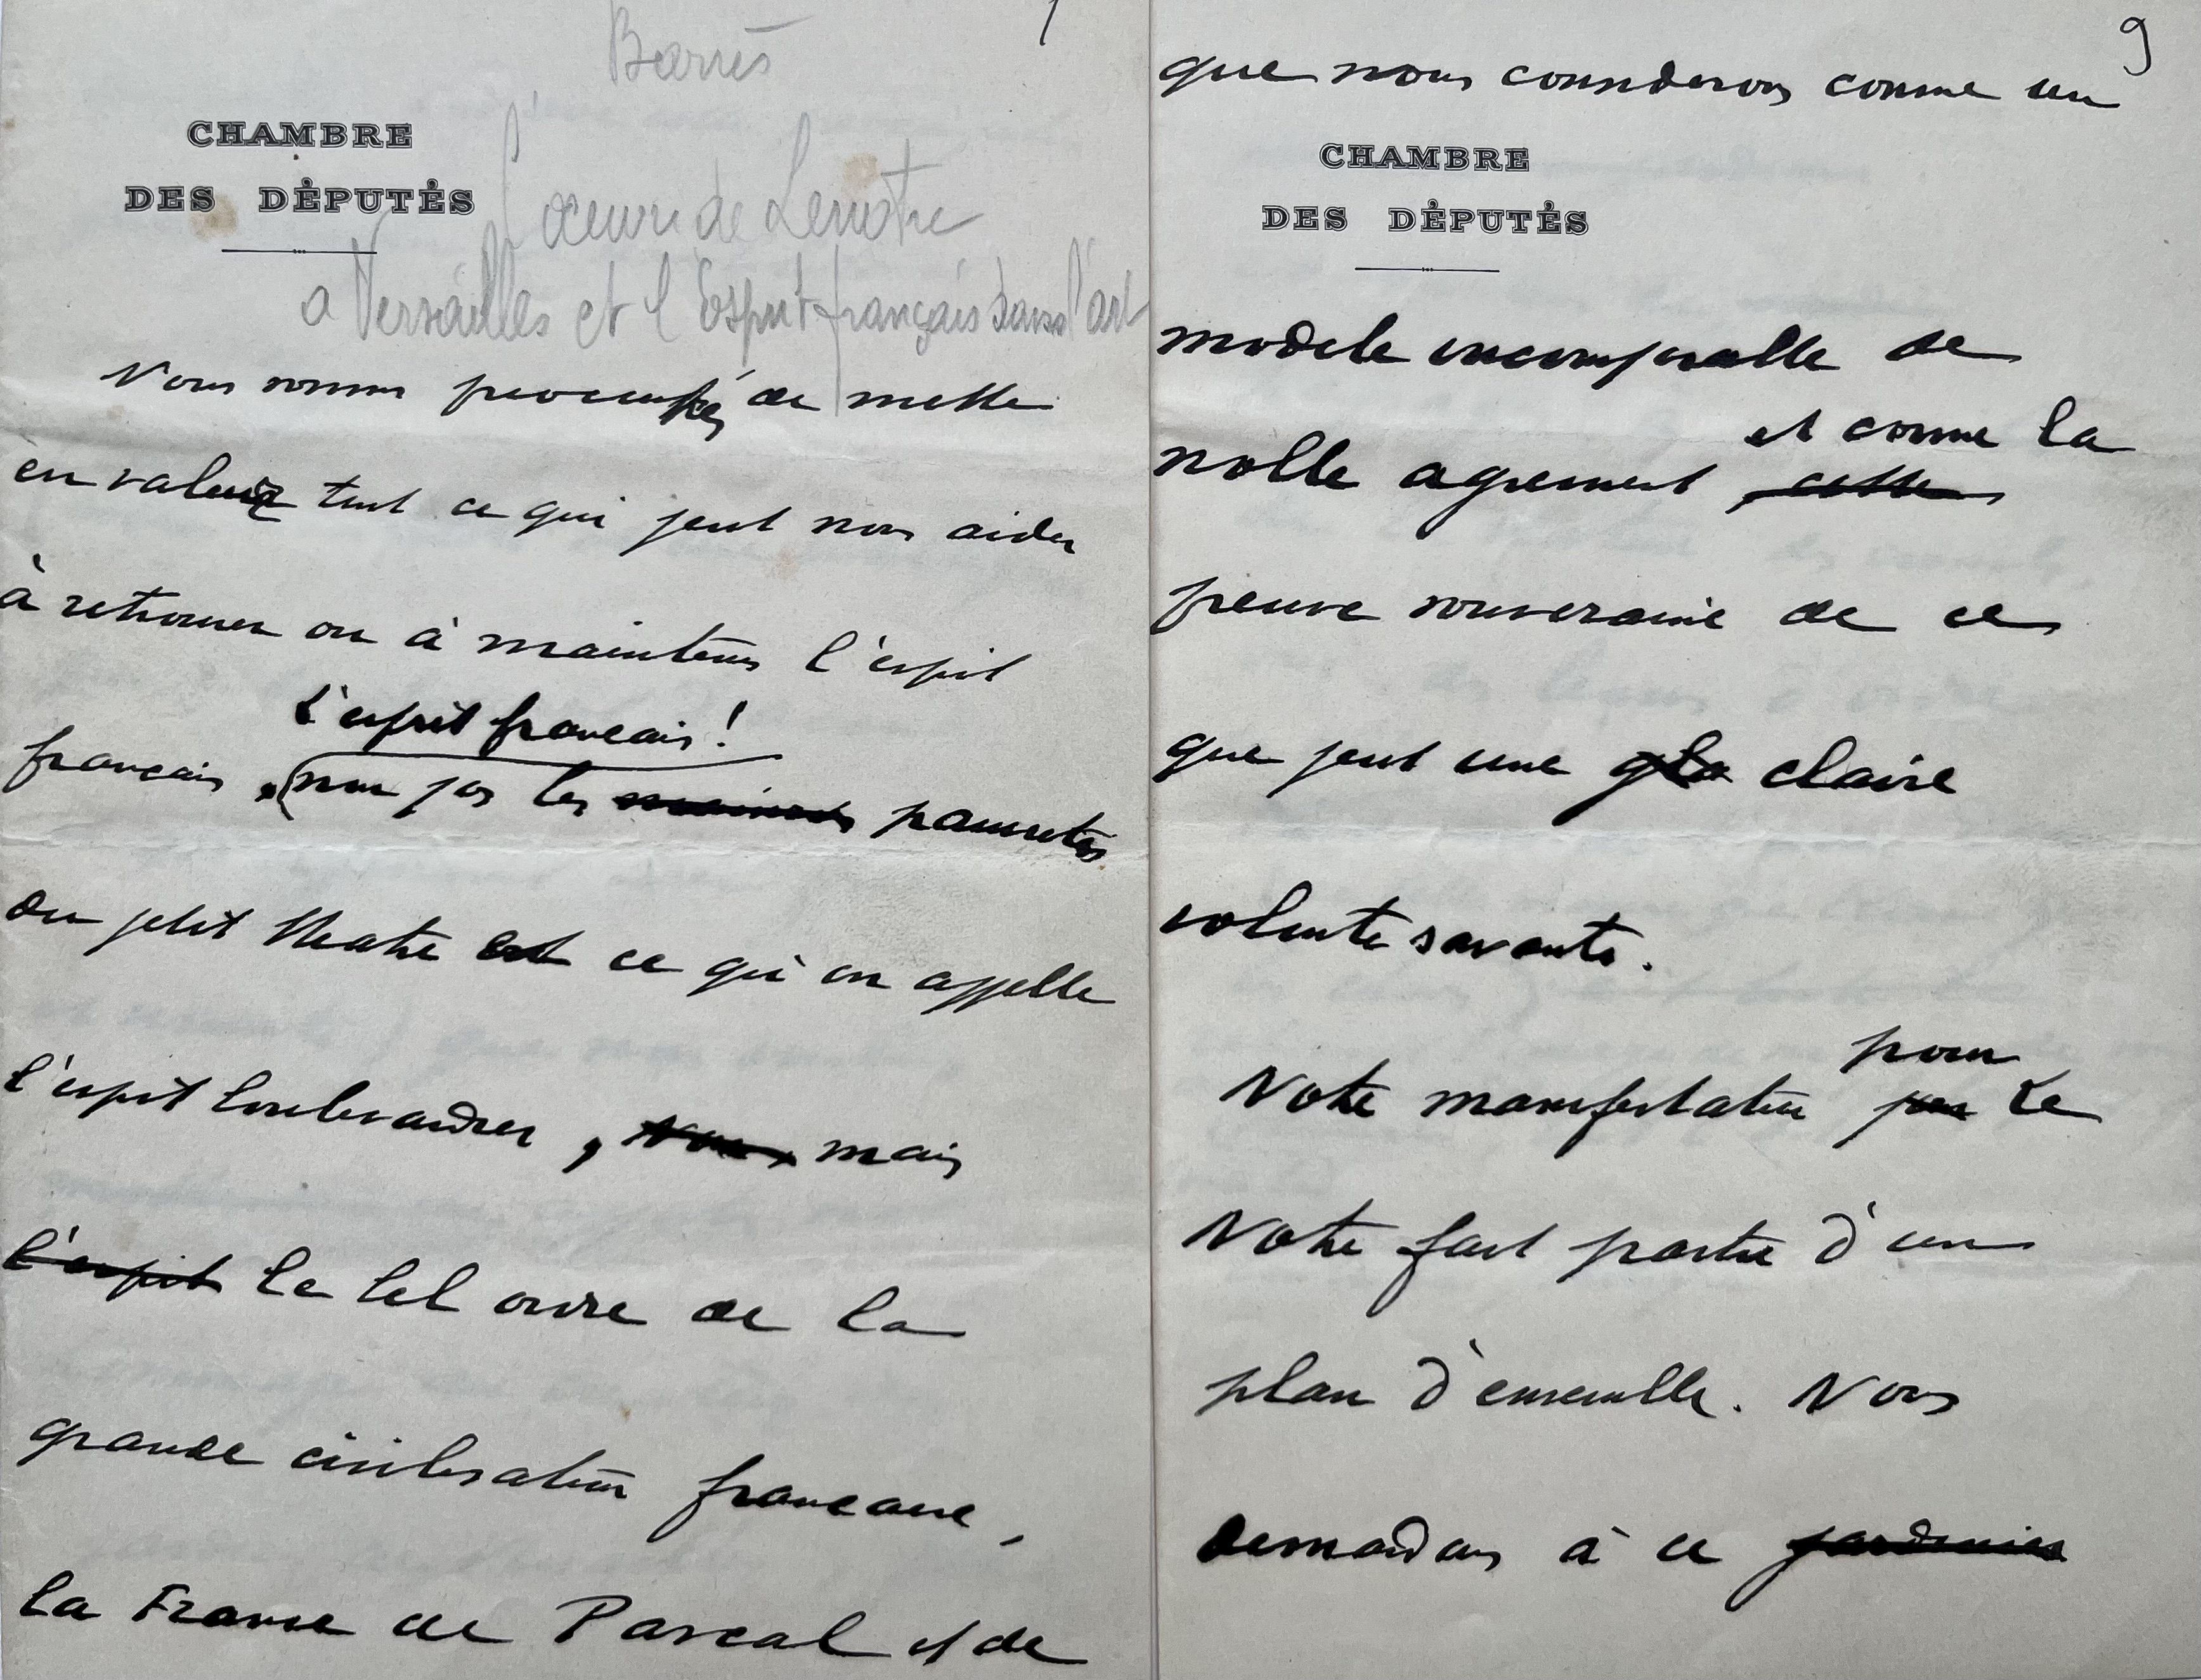 1
Barrès
CHAMBRE
DES DÉPUTÉS
l'œuvre de Lenotre
a Versailles et l'Esprit français dans l'art
Nous sommes préoccupés de mettre
en valeur tout ce qui peut nous aider
à retrouver ou à maintenir l'esprit
l'esprit francais !
francais, non pas les pauvretés
du petit theatre et ce qu'on appelle
l'esprit boulevardier, mais
l'esprit le bel ordre de la
grande civilisation francaise,
la France de Pascal et de
9
que nous considerons comme un
CHAMBRE
DES DÉPUTÉS
modele incomparable de
et comme la
noble agrement, cette
preuve souveraine de ce
que peut une claire
volonte savante.
pour
Notre manifestation Le
Notre fait partie d'un
plan d'ensemble. Nous
demandons à ce jardinier